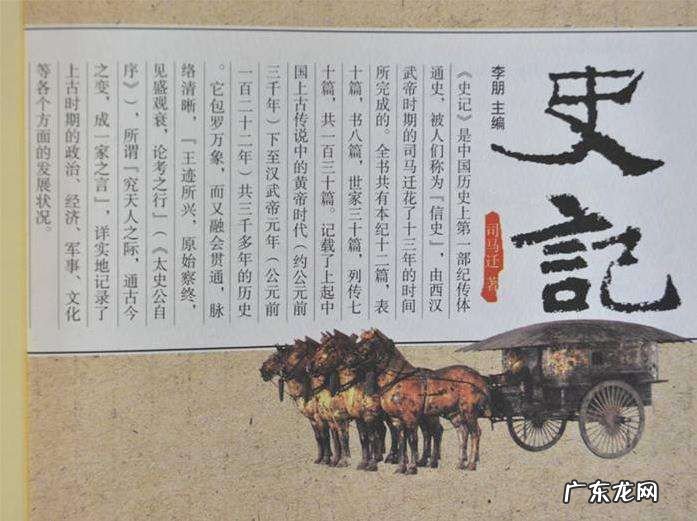 史記
司马迁 著
李朋 主编
《史记》是中国历史上第一部纪传体
通史，被人们称为『信史』，由西汉
武帝时期的司马迁花了十三年的时间
所完成的。全书共有本纪十二篇，表
十篇，书八篇，世家三十篇，列传七
十篇，共一百三十篇。记载了上起中
国上古传说中的黄帝时代（约公元前
三千年）下至汉武帝元年（公元前
一百二十二年）共三千多年的历史
。它包罗万象，而又融会贯通，脉
络清晰，『王迹所兴，原始察终，
见盛观衰，论考之行』（《太史公自
序》），所谓『究天人之际，通古今
之变，成一家之言』，详实地记录了
上古时期的政治、经济、军事、文化
等各个方面的发展状况。
广东龙网